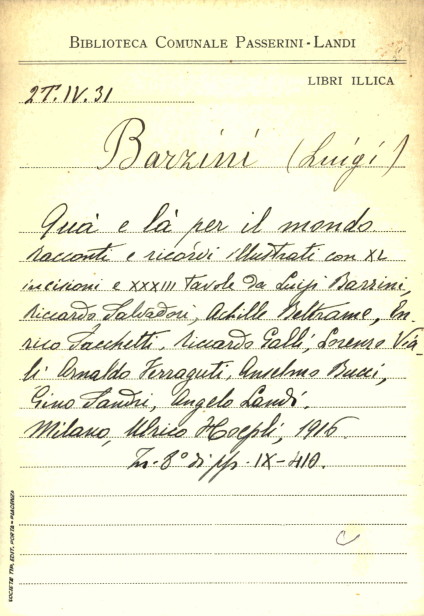 BIBLIOTECA COMUNALE PASSERINI-LANDI
LIBRI ILLICA
2T.IV.31
Barzini (Luigi)
Quà e là per il mondo
racconti e ricordi illustrati con XL
incisioni e XXXIII tavole da Luigi Barzini,
Riccardo Salvadori, Achille Beltrame, En-
rico Sacchetti, Riccardo Galli, Lorenzo Via-
li Arnaldo Ferraguti, Anselmo Bucci,
Gino Sandri, Angelo Landi.
Milano, Ulrico Hoepli, 1916.
In-8° di pp. IX-410.
C
SOCIETÀ TIP. EDIT. PORTA - PIACENZA